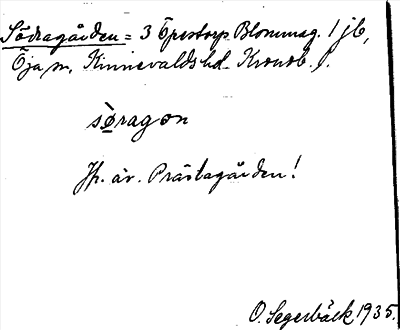 Södragården = 3 Öpestorp Blommag. 1 jb,
Öja sn, Kinnevalds hd. Kronob. l.
sø̀ragon
Jfr. äv. Prästagården!
O. Segerbäck 1935.